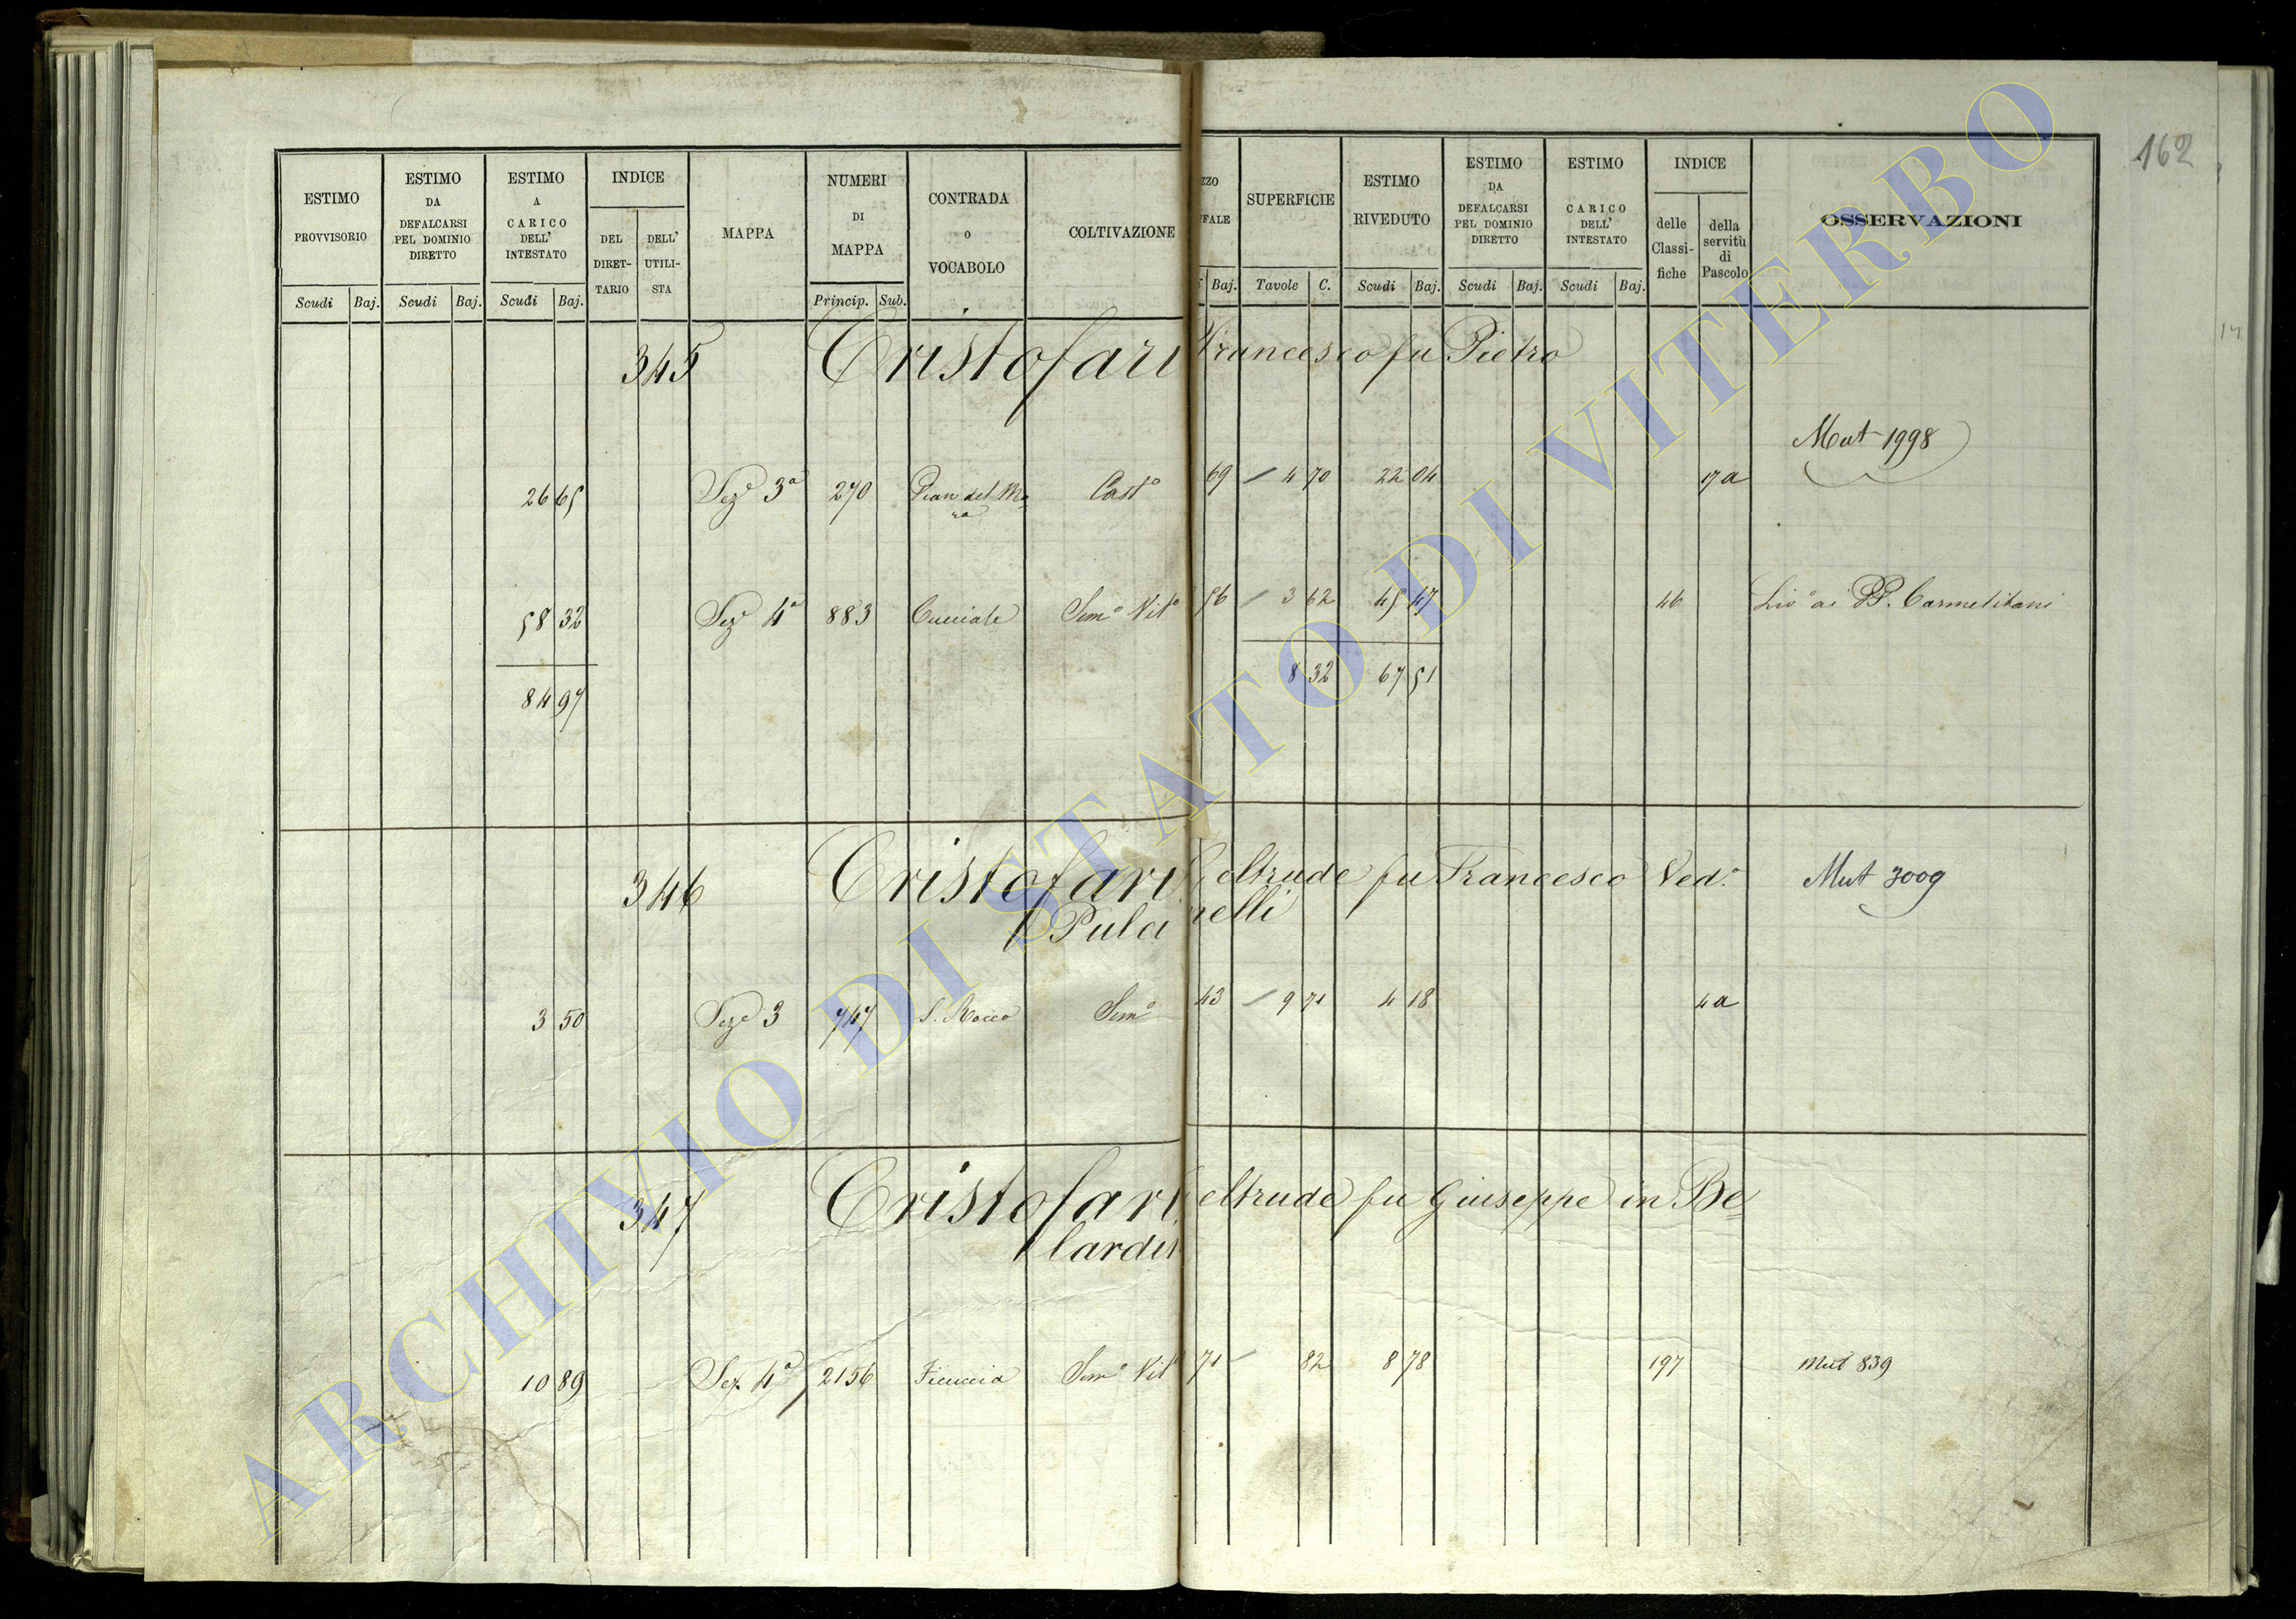 162
ESTIMO PROVVISORIO
Scudi Baj.
ESTIMO DA DEFALCARSI PEL DOMINIO DIRETTO
Scudi Baj.
ESTIMO A CARICO DELL' INTESTATO
Scudi Baj.
INDICE
DEL DIRET-TARIO
DELL' UTILI-STA
MAPPA
NUMERI DI MAPPA
Princip. Sub.
CONTRADA O VOCABOLO
COLTIVAZIONE
ZZO
FALE
Baj.
SUPERFICIE
Tavole C.
ESTIMO RIVEDUTO
Scudi Baj.
ESTIMO DA DEFALCARSI PEL DOMINIO DIRETTO
Scudi Baj.
ESTIMO CARICO DELL' INTESTATO
Scudi Baj.
INDICE
delle Classi-fiche
della servitù di Pascolo
OSSERVAZIONI
345 Cristofari Francesco fu Pietro
Mut 1998
26 65 Sezᵉ 3ª 270 Pian del Ma= Castº 69 / 4 70 22 04 17 a
ra
58 32 Sezᵉ 4ª 883 Cucciale Semº Vitº 56 / 3 62 45 47 46 Livº ai PP. Carmelitani
84 97 8 32 67 51
346 Cristofari Geltrude fu Francesco Vedª Mut 3009
Pulcinelli
3 50 Sezᵉ 3 747 S. Rocco Semº 43 / 9 71 4 18 4 a
347 Cristofari Geltrude fu Giuseppe in Be=
lardi
10 89 Sez. 4ª 2156 Ficuccia Semº Vitº 71 / 82 8 78 197 Mut 839
ARCHIVIO DI STATO DI VITERBO